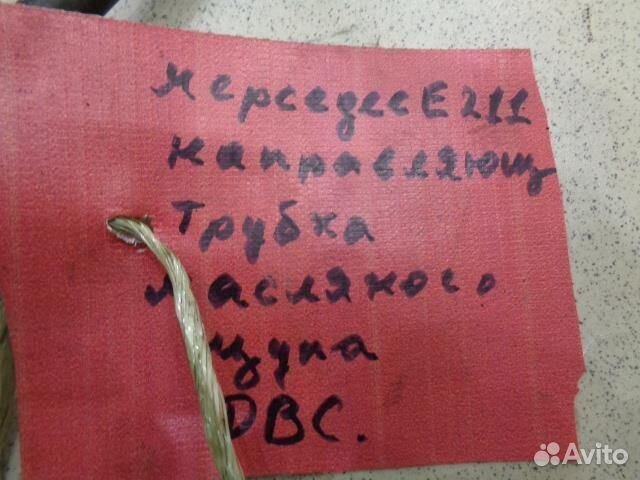 Мерседес E 211
направляющ
трубка
масляного
щупа
ДВС.
Avito